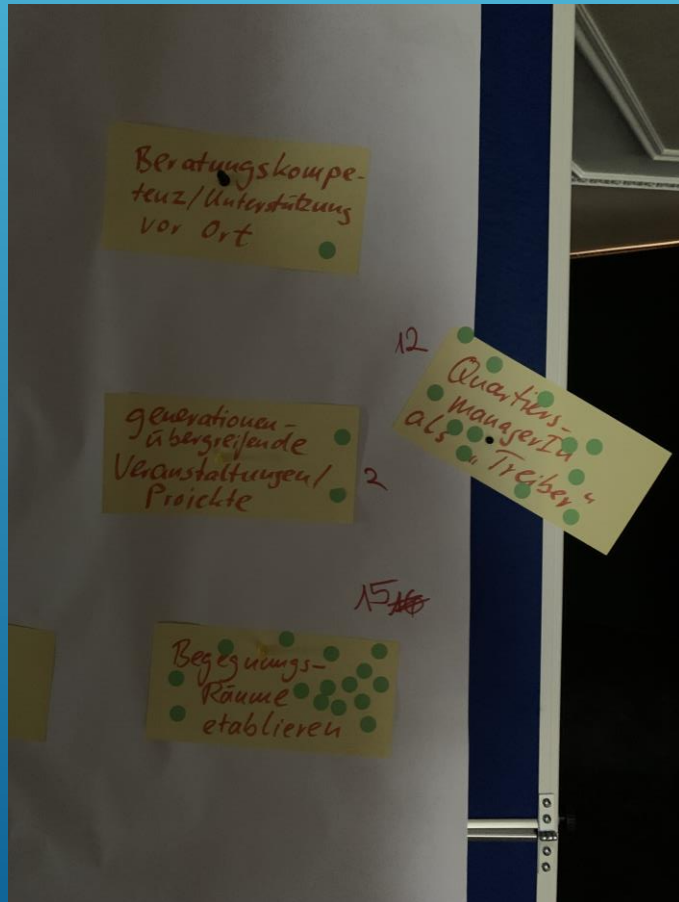 Beratungskompe-
tenz/Unterstützung
vor Ort
12
Quartiers-
managerIn
als "Treiber"
generationen-
übergreifende
Veranstaltungen/
Projekte
2
15
Begegnungs-
Räume
etablieren